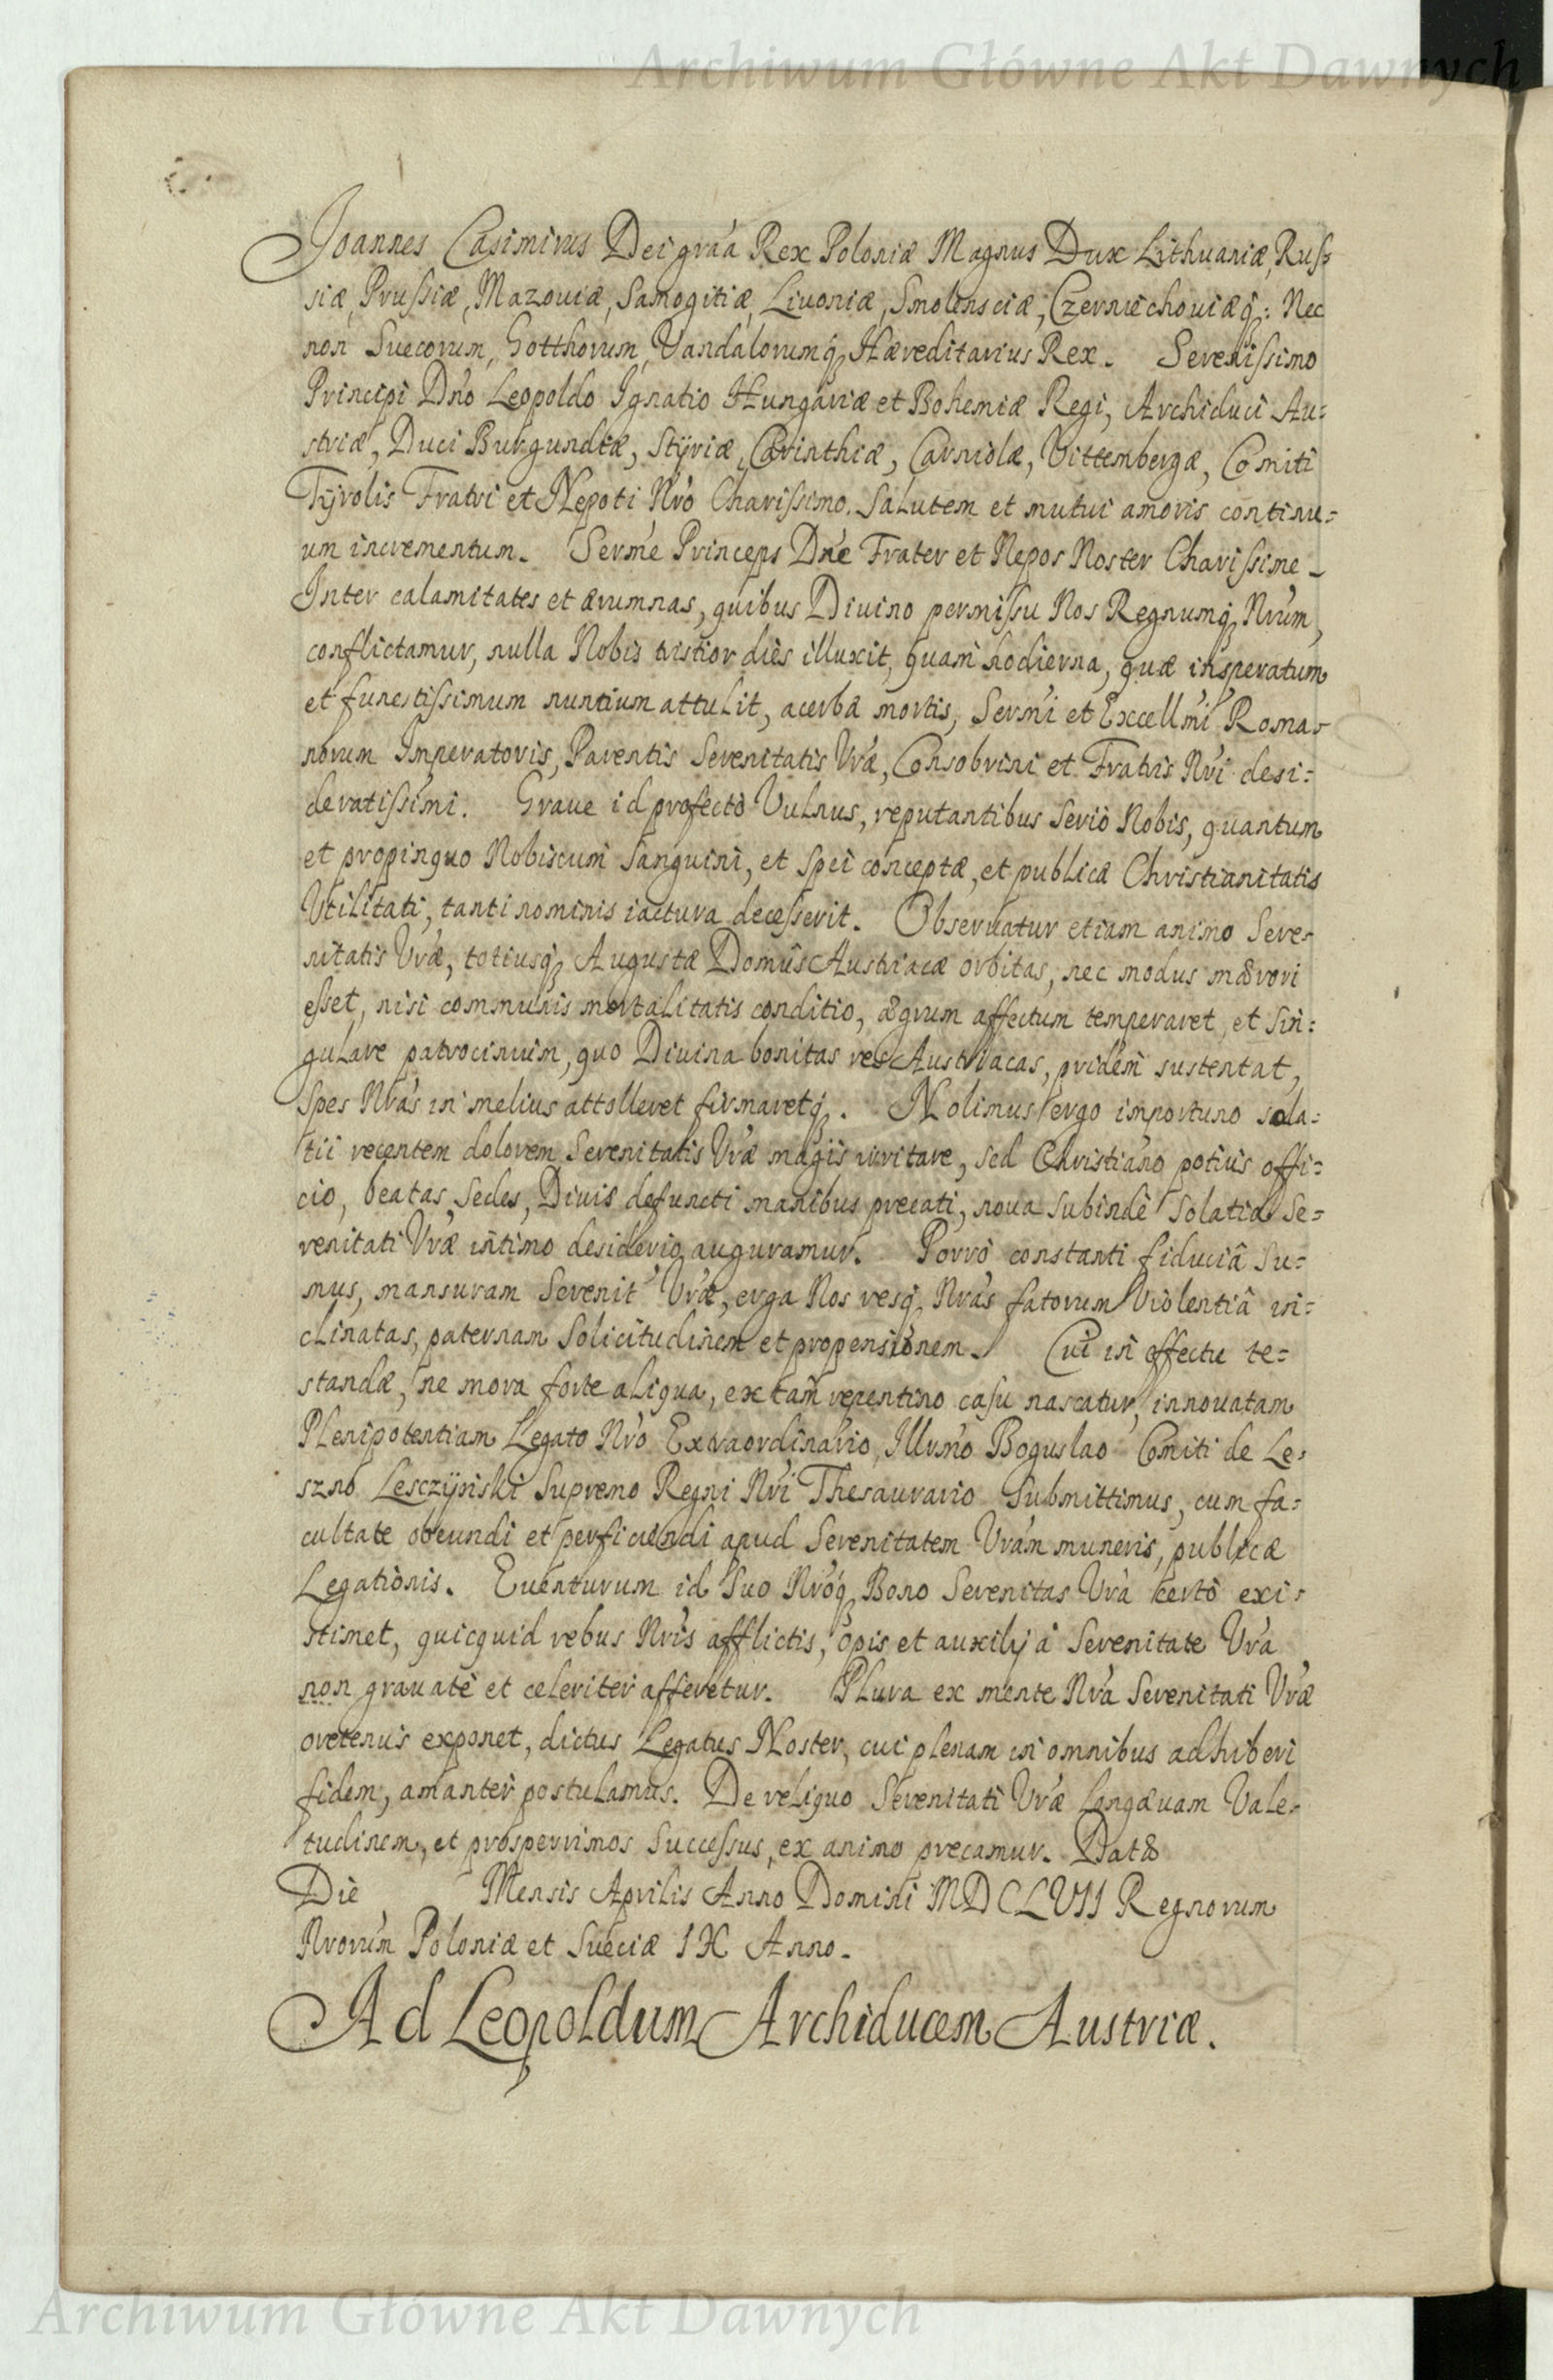 Archiwum Główne Akt Dawnych
Joannes Casimirus Dei grãa Rex Poloniæ Magnus Dux Lithuaniæ, Rus=
siæ, Prussiæ, Mazouiæ, Samogitiæ, Livoniæ, Smolensciæ, Czerniechouiæq́;: Nec
non Suecorum, Gotthorum, Vandalorumq́; Hæreditarius Rex. Serenissimo
Principi Dńo Leopoldo Ignatio Hungariæ et Bohemiæ Regi, Archiduci Au=
striæ, Duci Burgundiæ, Stÿriæ, Carinthiæ, Carniolæ, Vittembergæ, Comiti
Tÿrolis Fratri et Nepoti Nró Charissimo. Salutem et mutui amoris continu=
um incrementum. Sermé Princeps Dńe Frater et Nepos Noster Charissime.
Inter calamitates et ærumnas, quibus Diuino permissu Nos Regnumq́; Nrúm,
conflictamur, nulla Nobis tristior dies illuxit, quam hodierna, quæ insperatum
et funestissimum nuntium attulit, acerbæ mortis, Sermi et Excellmi Roma=
norum Imperatoris, Parentis Serenitatis Vræ, Consobrini et Fratris Nri desi=
deratissimi. Graue id profectò Vulnus, reputantibus seriò Nobis, quantum
et propinquo Nobiscum sanguini, et spei conceptæ, et publicæ Christianitatis
Vtilitati, tanti nominis iactura decesserit. Obseruatur etiam animo Sere=
nitatis Vræ, totiusq́; Augustæ Domûs Austriacæ orbitas, nec modus mærori
esset, nisi communis mortalitatis conditio, ægrum affectum temperaret, et sin=
gulare patrocinium, quo Diuina bonitas res Austriacas, pridem sustentat,
spes Nrás in melius attolleret firmaretq́;. Nolimus ergo importuno sola=
tii recentem dolorem Serenitatis Vræ magis irritare, sed Christiano potius offi=
cio, beatas sedes, Diuis defuncti manibus precati, noua subinde solatia Se=
renitati Vræ intimo desiderio auguramur. Porrò constanti fiduciâ su=
mus, mansuram Serenit Vræ, erga Nos resq́; Nrás fatorum violentiâ in=
clinatas, paternam solicitudinem et propensionem. Cui in effectu te=
standæ, ne mora forte aliqua, ex tam repentino casu nascatur, innouatam
Plenipotentiam Legato Nró Extraordinario, Illrmo Boguslao Comiti de Le=
szno Lesczÿnski Supremo Regni Nri Thesaurario submittimus, cum fa=
cultate obeundi et perficiendi apud Serenitatem Vrám muneris, publicæ
Legationis. Euenturum id suo Nróq́; Bono Serenitas Vrá certò exi=
stimet, quicquid rebus Nris afflictis, opis et auxilij à Serenitate Vrá
non grauatè et celeriter afferetur. Plura ex mente Nrá Serenitati Vræ
oretenus exponet, dictus Legatus Noster, cui plenam in omnibus adhiberi
fidem, amanter postulamus. De reliquo Serenitati Vræ longæuam Vale=
tudinem, et prosperrimos successus, ex animo precamur. Dat&
Die Mensis Aprilis Anno Domini MDCLVII Regnorum
Nrorúm Poloniæ et Sueciæ IX Anno.
Ad Leopoldum Archiducem Austriæ.
Archiwum Główne Akt Dawnych